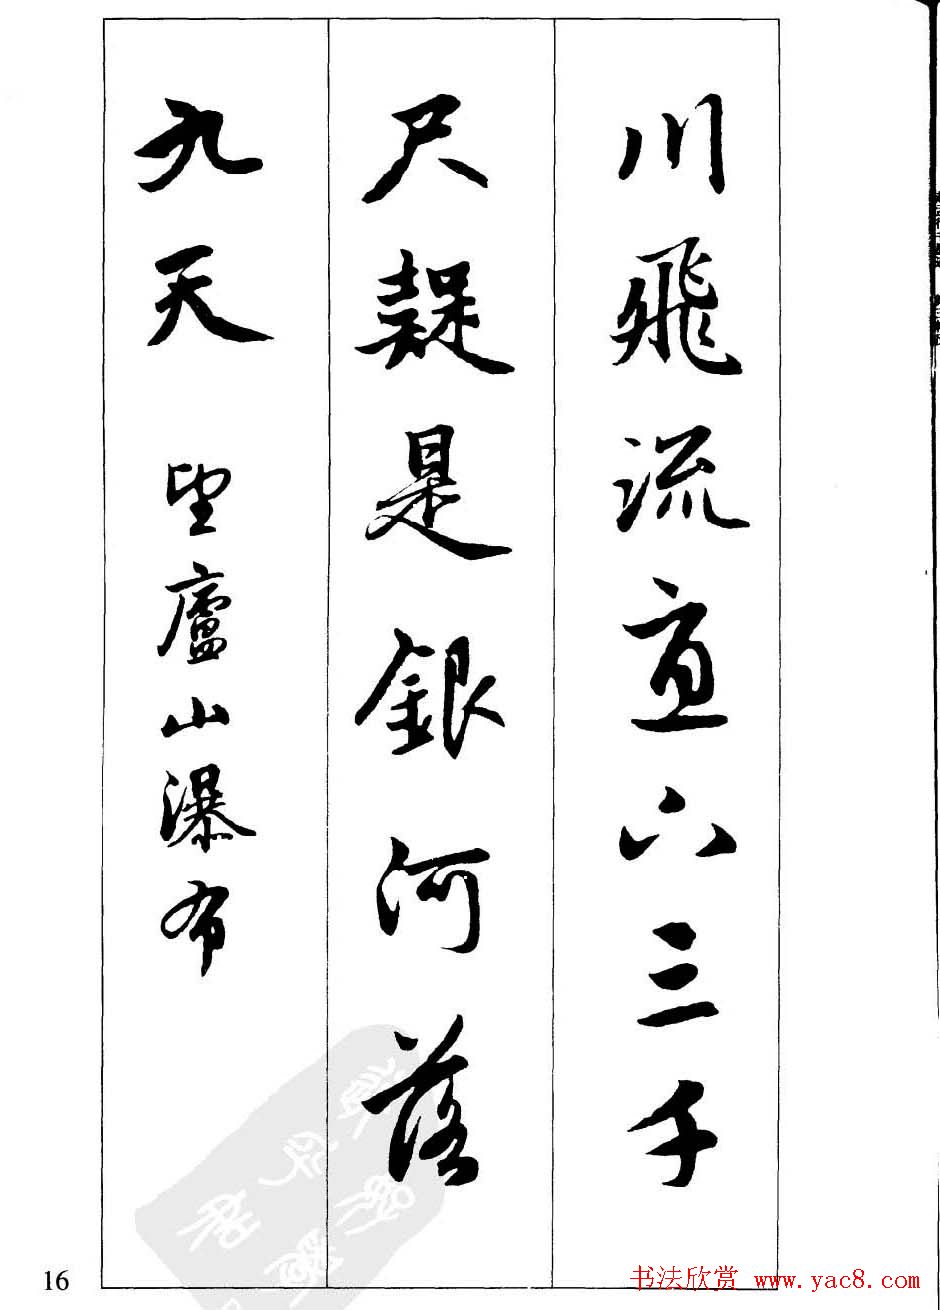 川飛流直下三千
尺疑是銀河落
九天 望廬山瀑布
16
书法欣赏 www.yac8.com